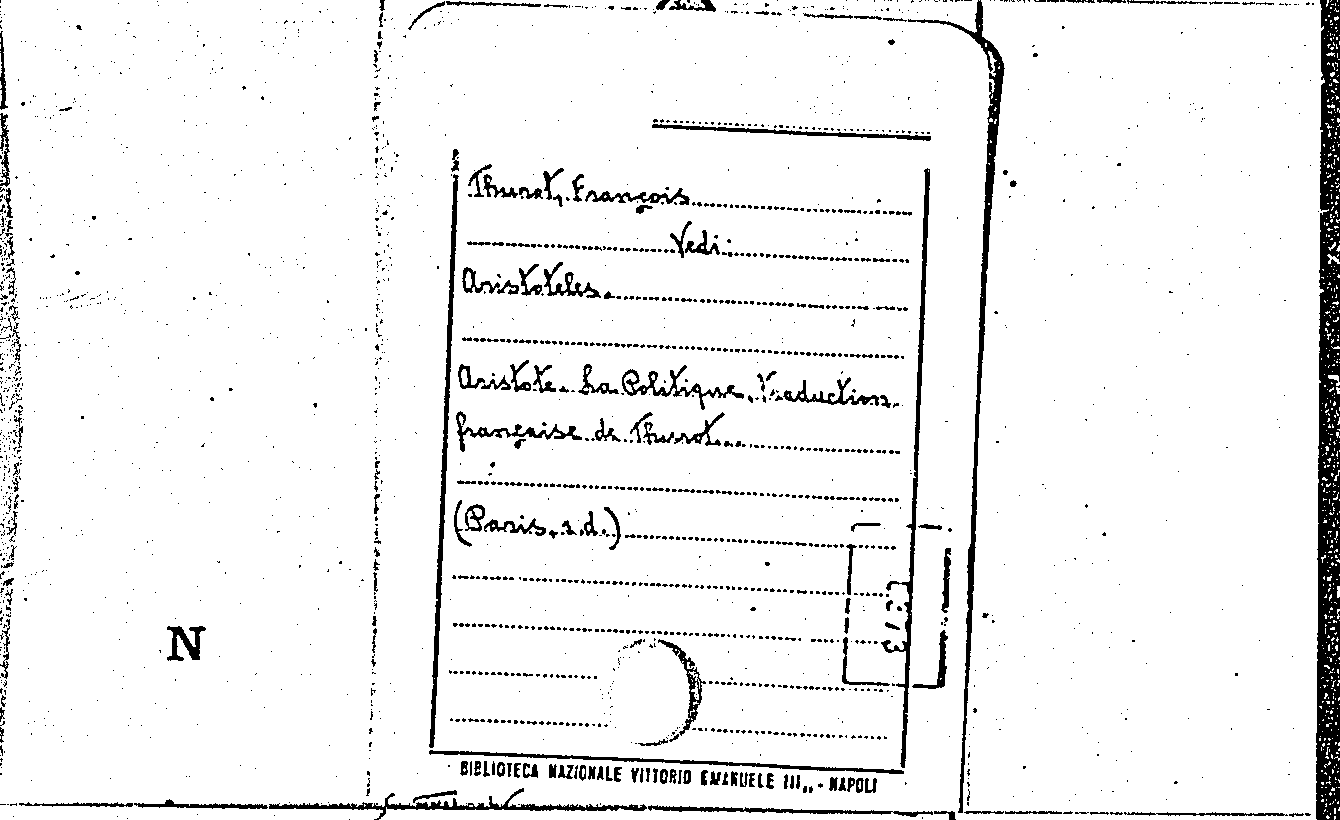 Thurot, François
Vedi:
Aristoteles.
Aristote. La Politique. Traduction
française de Thurot...
(Paris, s.d.)
N
BIBLIOTECA NAZIONALE VITTORIO EMANUELE III„ - NAPOLI